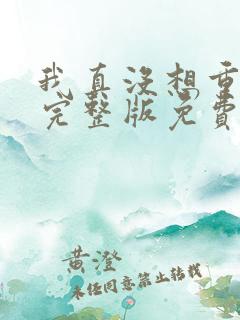 我真没想重
完整版免费
黄澄
未经同意禁止转载